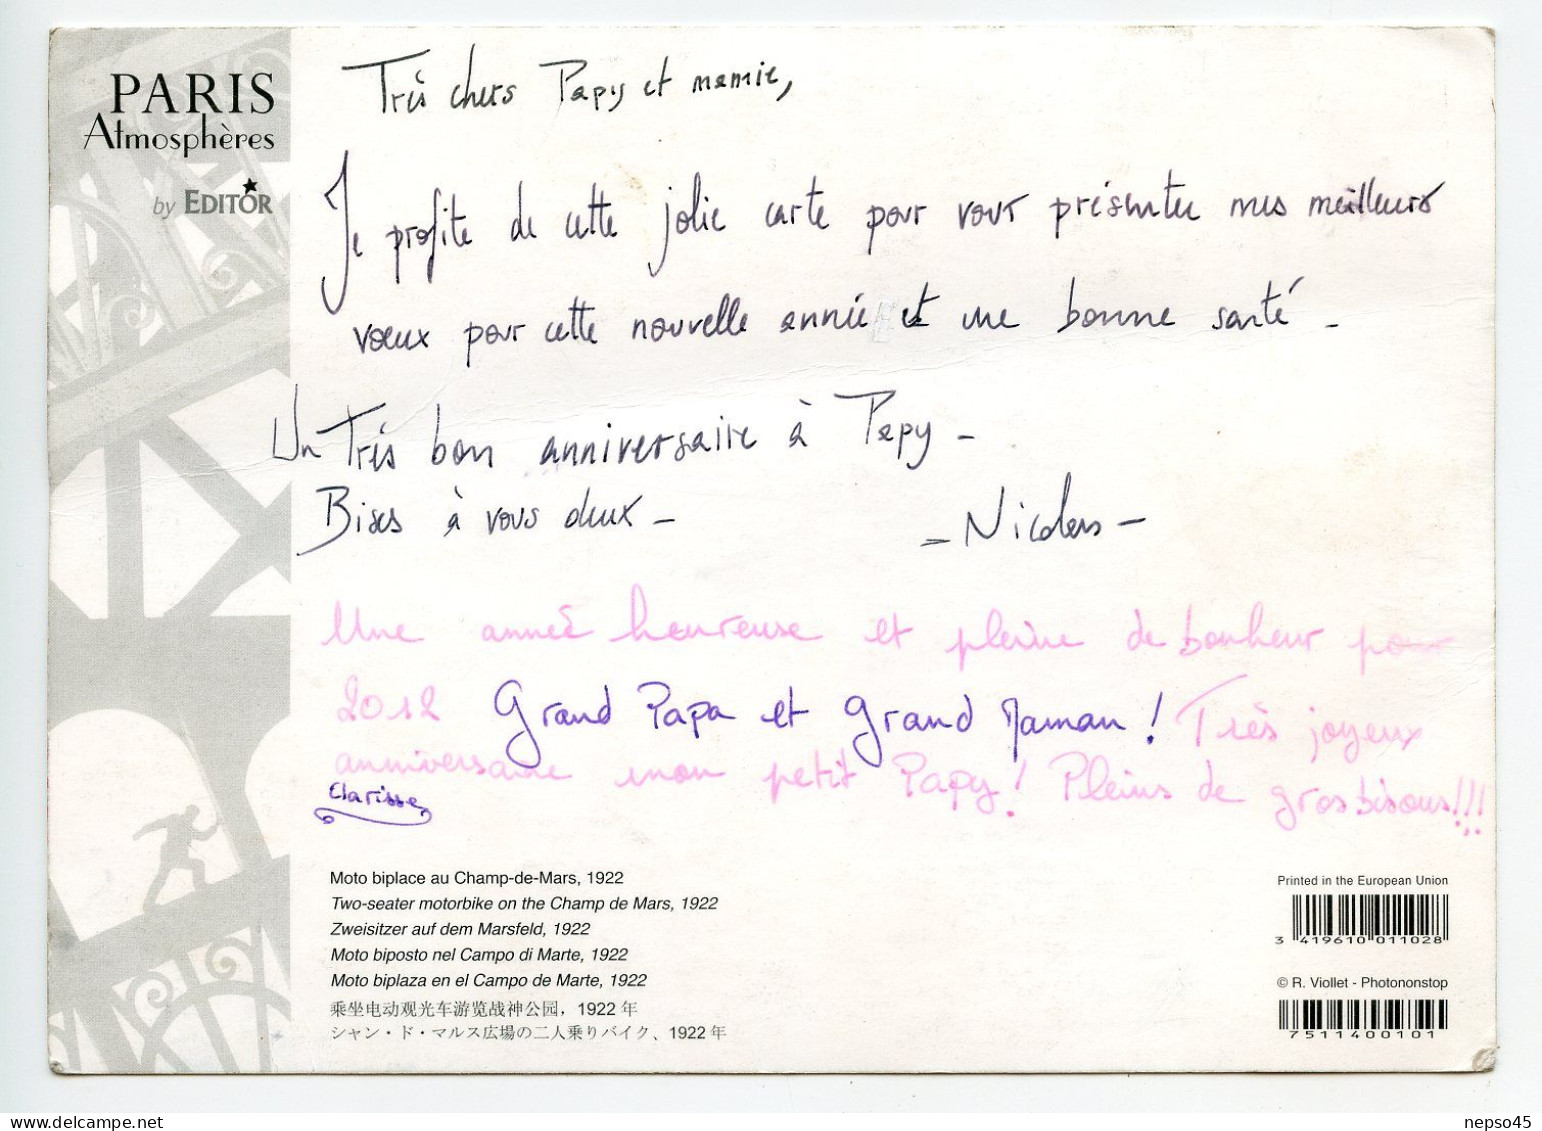 PARIS
Atmosphères
by EDITOR
Très chers Papy et mamie,
Je profite de cette jolie carte pour vous présenter mes meilleurs
vœux pour cette nouvelle année et une bonne santé -
Un Très bon anniversaire à Papy -
Bises à vous deux -
- Nicolas -
Une année heureuse et pleine de bonheur pour
2012 Grand Papa et Grand Maman ! Très joyeux
anniversaire mon petit Papy ! Pleins de gros bisous !!!
Clarisse
Moto biplace au Champ-de-Mars, 1922
Two-seater motorbike on the Champ de Mars, 1922
Zweisitzer auf dem Marsfeld, 1922
Moto biposto nel Campo di Marte, 1922
Moto biplaza en el Campo de Marte, 1922
乘坐电动观光车游览战神公园，1922 年
シャン・ド・マルス広場の二人乗りバイク、1922 年
Printed in the European Union
3 419610 011028
© R. Viollet - Photononstop
7511400101
nepso45